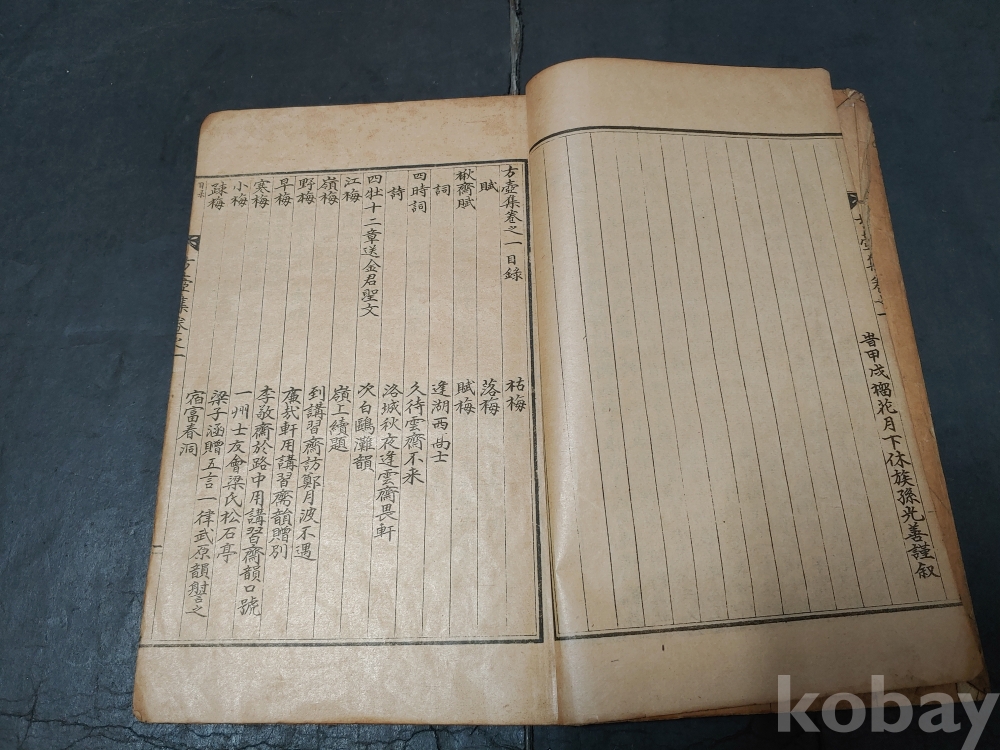 旹甲戌榴花月下休族孫光善謹叙
方壺集卷之一目錄
賦
楸齋賦
詞
四時詞
詩
四牡十二章送金君聖文
江梅
嶺梅
野梅
早梅
寒梅
小梅
疎梅
枯梅
落梅
賦梅
逢湖西士
久待雲齋不来
洛城秋夜逢雲齋畏軒
次白鷗灘韻
嶺上續題
到講習齋訪鄭月波不遇
廣哉軒用講習齋韻贈別
李敬齋於路中用講習齋韻口號
一州士友會梁氏松石亭
梁子涵贈五言一律武原韻讐之
宿富春洞
方壺集卷之一
kobay